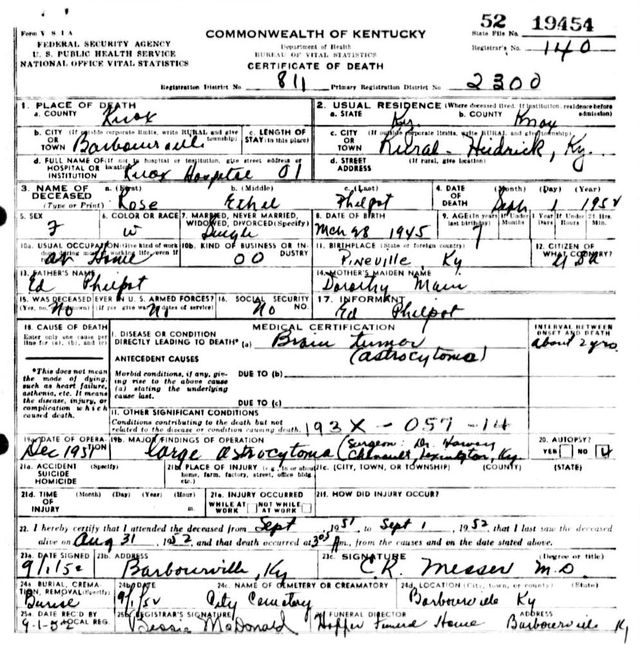 52 19454
Form V S 1 A
COMMONWEALTH OF KENTUCKY
State File No.
FEDERAL SECURITY AGENCY
Department of Health
Registrar's No. 140
U. S. PUBLIC HEALTH SERVICE
BUREAU OF VITAL STATISTICS
NATIONAL OFFICE VITAL STATISTICS
CERTIFICATE OF DEATH
Registration District No. 811 Primary Registration District No. 2300
1. PLACE OF DEATH
a. COUNTY Knox
2. USUAL RESIDENCE (Where deceased lived. If institution, residence before admission)
a. STATE Ky b. COUNTY Knox
b. CITY OR TOWN (If outside corporate limits, write RURAL and give township) Barbourville
c. LENGTH OF STAY (in this place)
c. CITY OR TOWN (If outside corporate limits, write RURAL and give township) Rural - Hedrick, Ky.
d. FULL NAME OF HOSPITAL OR INSTITUTION (If not in hospital or institution, give street address or location) Knox Hospital 01
d. STREET ADDRESS (If rural, give location)
3. NAME OF DECEASED (Type or Print)
a. (First) Rose
b. (Middle) Ethel
c. (Last) Philpot
4. DATE OF DEATH (Month) (Day) (Year) Sept 1 1952
5. SEX F
6. COLOR OR RACE W
7. MARRIED, NEVER MARRIED, WIDOWED, DIVORCED (Specify) Single
8. DATE OF BIRTH Mch 28 1945
9. AGE (In years last birthday) 7 If Under 1 Year Months Days If Under 24 Hrs. Hours Min.
10a. USUAL OCCUPATION (Give kind of work done during most of working life, even if retired) at Home
10b. KIND OF BUSINESS OR INDUSTRY 00
11. BIRTHPLACE (State or foreign country) Pineville Ky
12. CITIZEN OF WHAT COUNTRY? USA
13. FATHER'S NAME Ed Philpot
14. MOTHER'S MAIDEN NAME Dorothy
15. WAS DECEASED EVER IN U. S. ARMED FORCES? (Yes, no, or unknown) (If yes, give war or dates of service) No No
16. SOCIAL SECURITY NO. No
17. INFORMANT Ed Philpot
18. CAUSE OF DEATH
Enter only one cause per line for (a), (b), and (c)
MEDICAL CERTIFICATION
INTERVAL BETWEEN ONSET AND DEATH
I. DISEASE OR CONDITION DIRECTLY LEADING TO DEATH* (a) Brain Tumor (astrocytoma) about 2 yrs.
*This does not mean the mode of dying, such as heart failure, asthenia, etc. It means the disease, injury, or complication which caused death.
ANTECEDENT CAUSES
Morbid conditions, if any, giving rise to the above cause (a) stating the underlying cause last.
DUE TO (b)
DUE TO (c)
II. OTHER SIGNIFICANT CONDITIONS
Conditions contributing to the death but not related to the disease or condition causing death.
193X - 057 - 14
19a. DATE OF OPERATION Dec 1951
19b. MAJOR FINDINGS OF OPERATION large astrocytoma (Surgeon: Dr. Harvey Chenault, Lexington, Ky.
20. AUTOPSY? YES NO
21a. ACCIDENT SUICIDE HOMICIDE (Specify)
21b. PLACE OF INJURY (e.g., in or about home, farm, factory, street, office bldg., etc.)
21c. (CITY, TOWN, OR TOWNSHIP) (COUNTY) (STATE)
21d. TIME OF INJURY (Month) (Day) (Year) (Hour) m.
21e. INJURY OCCURRED WHILE AT WORK NOT WHILE AT WORK
21f. HOW DID INJURY OCCUR?
22. I hereby certify that I attended the deceased from Sept, 1951, to Sept 1, 1952, that I last saw the deceased
alive on Aug 31, 1952, and that death occurred at m., from the causes and on the date stated above.
23a. DATE SIGNED 9/1/52
23b. ADDRESS Barbourville, Ky
23c. SIGNATURE (Degree or title) C.R. Messer M.D.
24a. BURIAL, CREMATION, REMOVAL (Specify) Burial
24b. DATE 9/1/52
24c. NAME OF CEMETERY OR CREMATORY City Cemetery
24d. LOCATION (City, town, or county) (State) Barbourville Ky
25a. DATE REC'D BY LOCAL REG. 9-1-52
25b. REGISTRAR'S SIGNATURE Bessie McDonald
26. FUNERAL DIRECTOR Hopper Funeral Home
ADDRESS Barbourville Ky